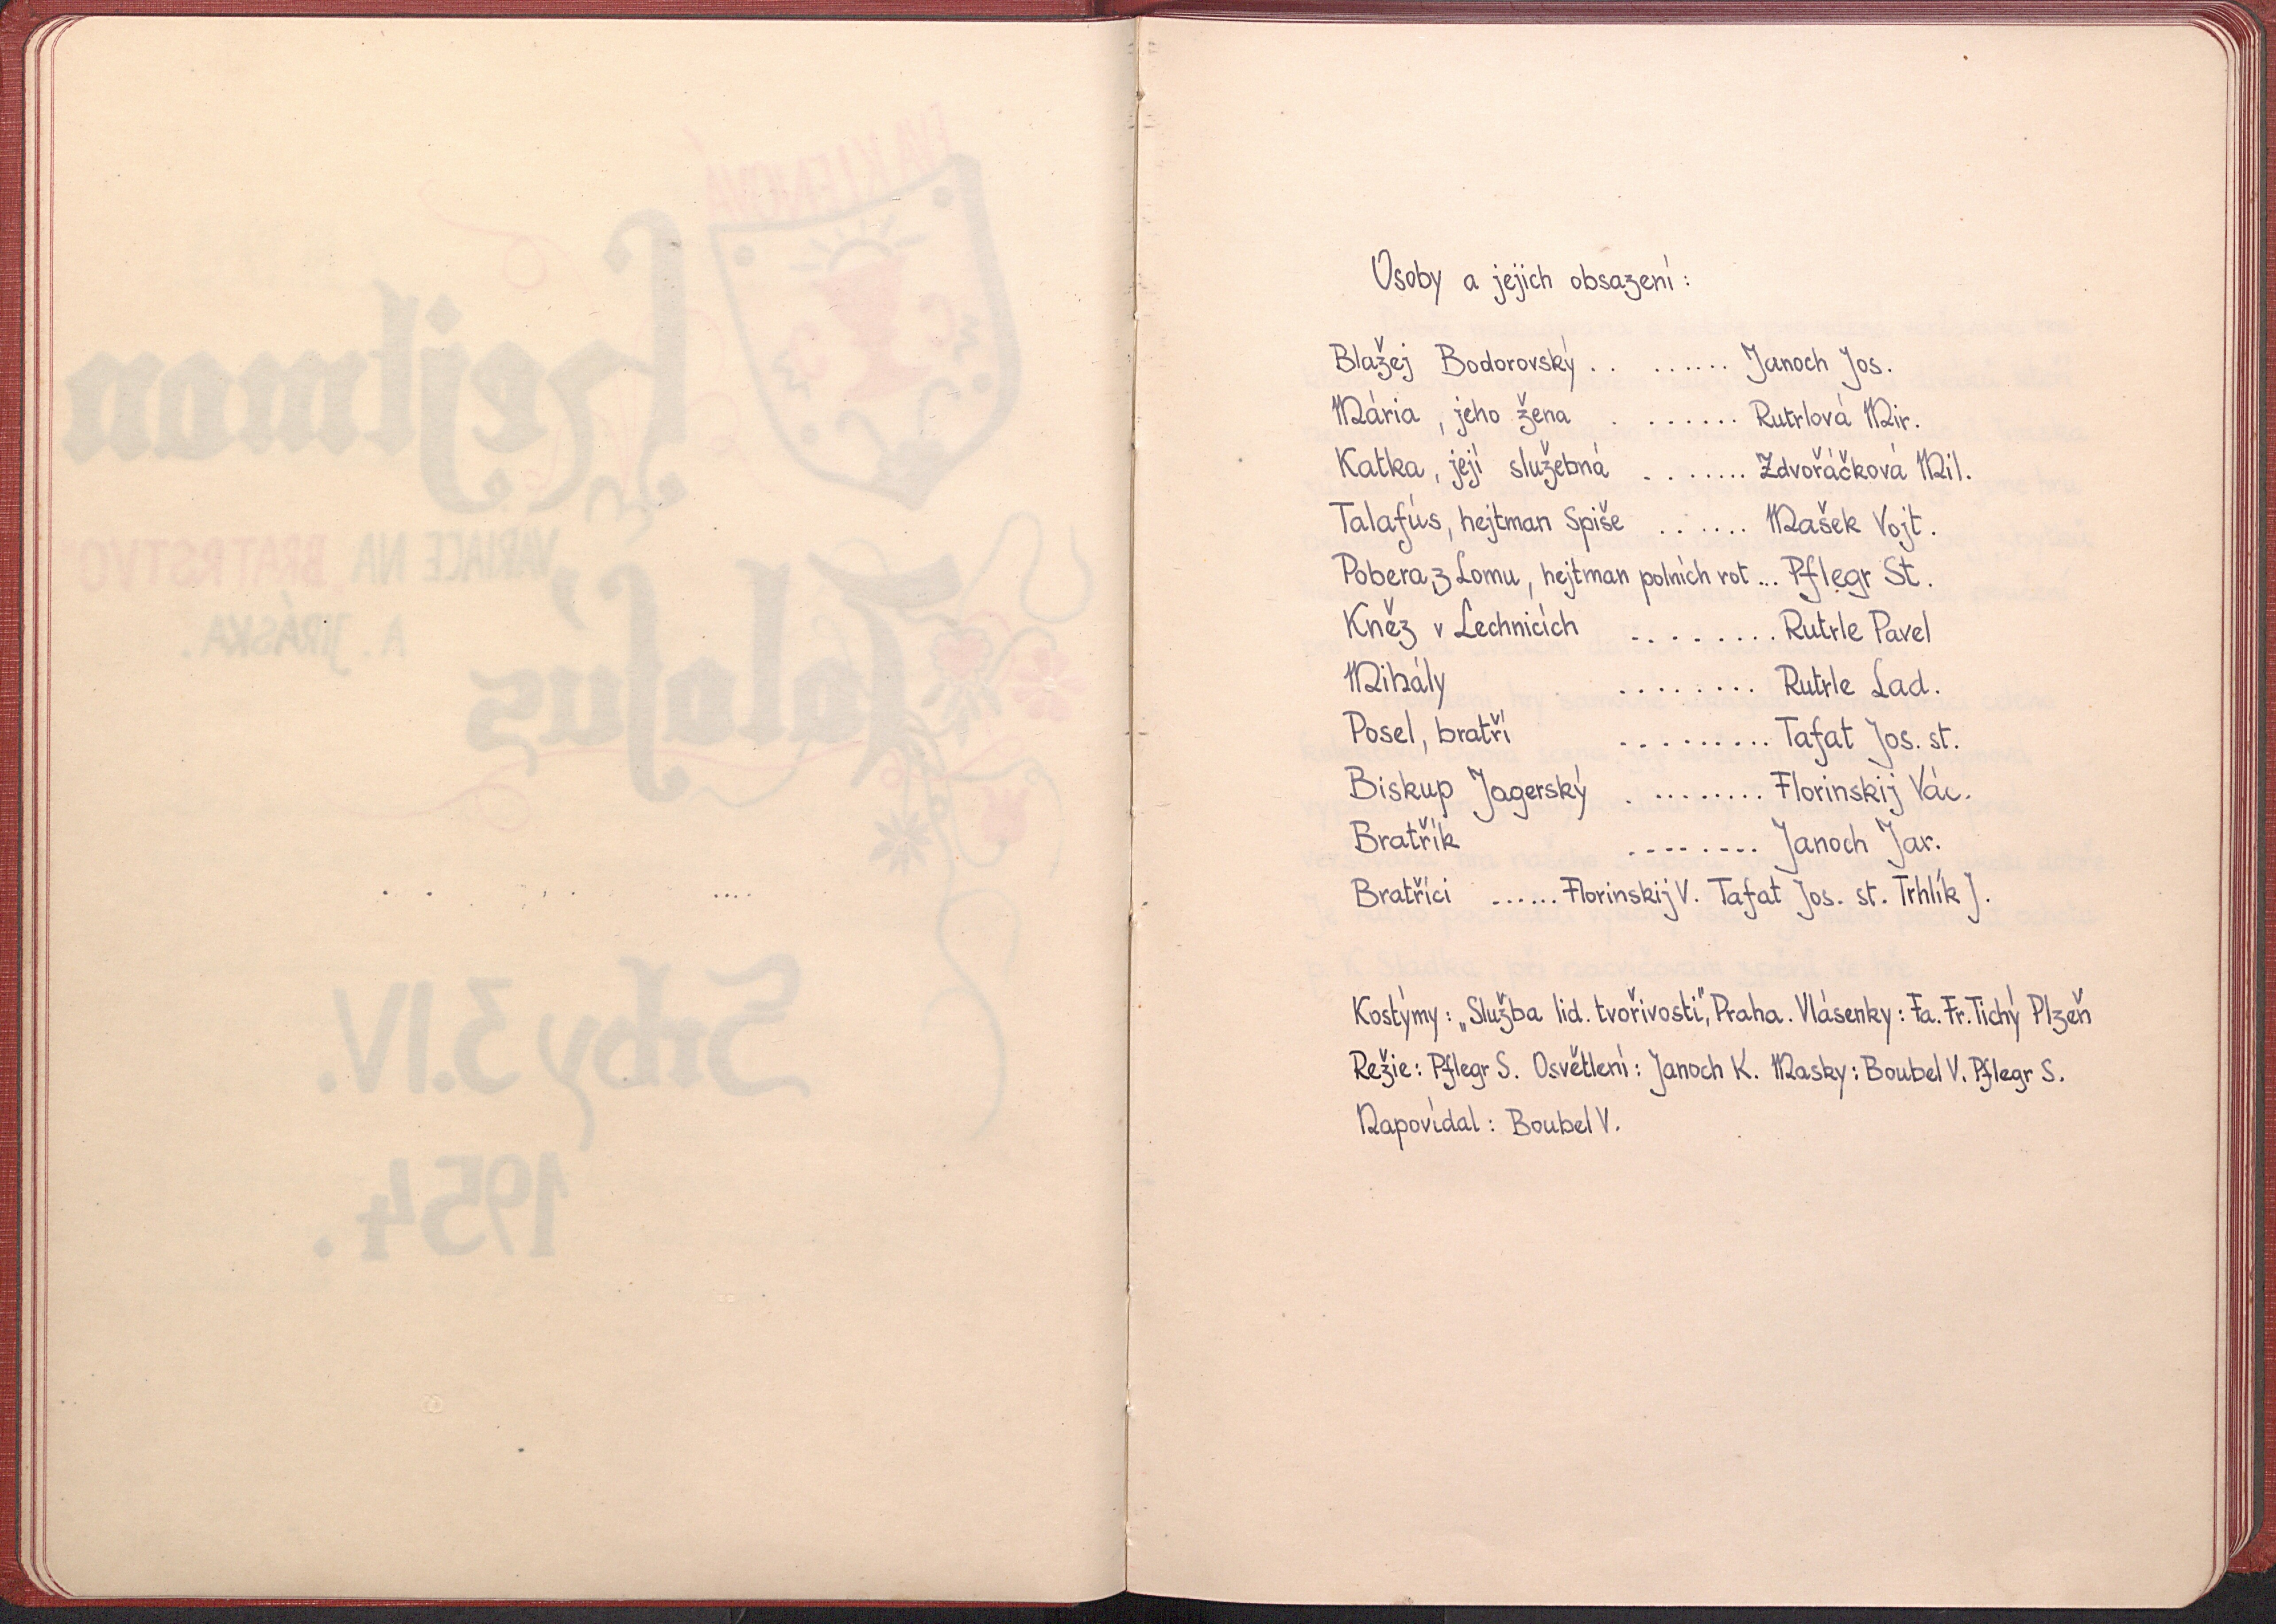 EVA KLENOVÁ
Hejtman
VARIACE NA „BRATRSTVO"
A. JIRÁSKA.
Talafús
Srby 3.IV.
1954.
Osoby a jejich obsazení:
Blažej Bodorovský . . . . . . . . Janoch Jos.
Mária, jeho žena . . . . . . . . Rutrlová Mir.
Katka, její služebná . . . . . . . Zdvořáčková Mil.
Talafús, hejtman Spiše . . . . . . Mašek Vojt.
Pobera z Lomu, hejtman polních rot ... Pflegr St.
Kněz v Lechnicích . . . . . . . . Rutrle Pavel
Mihály . . . . . . . . Rutrle Lad.
Posel, bratří . . . . . . . . . Tafat Jos. st.
Biskup Jagerský . . . . . . . . . Florinskij Vác.
Bratřík . . . . . . . . Janoch Jar.
Bratříci ...... Florinskij V. Tafat Jos. st. Trhlík J.
Kostýmy: „Služba lid. tvořivosti", Praha. Vlásenky: Fa. Fr. Tichý Plzeň
Režie: Pflegr S. Osvětlení: Janoch K. Masky: Boubel V. Pflegr S.
Napovídal: Boubel V.